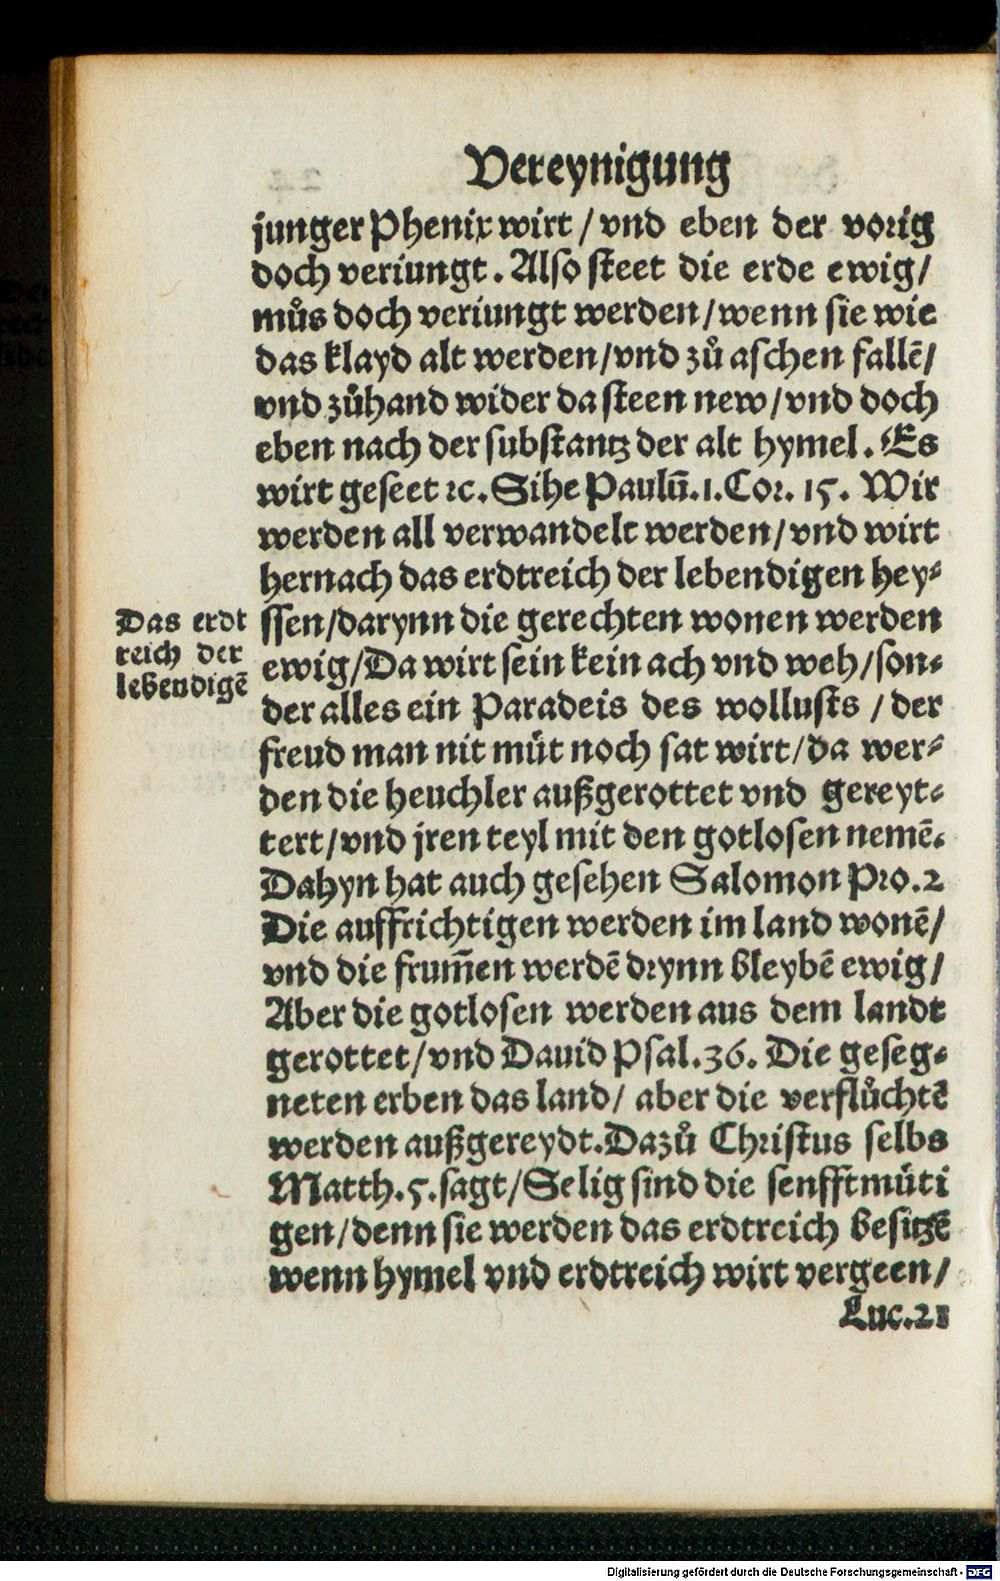 Vereynigung
junger Phenix wirt / vnd eben der vorig
doch veriungt. Also steet die erde ewig/
můs doch veriungt werden/wenn sie wie
das klayd alt werden/vnd zů aschen fallē/
vnd zůhand wider da steen new/vnd doch
eben nach der substantz der alt hymel. Es
wirt geseet ꝛc. Sihe Paulū.1.Cor. 15. Wir
werden all verwandelt werden/vnd wirt
hernach das erdtreich der lebendigen hey⸗
ssen/darynn die gerechten wonen werden
Das erdt
reich der
lebendigē
ewig/Da wirt sein kein ach vnd weh/son⸗
der alles ein Paradeis des wollusts / der
freud man nit müt noch sat wirt/da wer⸗
den die heuchler außgerottet vnd gereyt⸗
tert/vnd jren teyl mit den gotlosen nemē.
Dahyn hat auch gesehen Salomon Pro.2
Die auffrichtigen werden im land wonē/
vnd die frum̄en werdē drynn bleybē ewig/
Aber die gotlosen werden aus dem landt
gerottet/vnd Dauid Psal.36. Die geseg⸗
neten erben das land/ aber die verflůchtē
werden außgereydt.Dazů Christus selbs
Matth.5.sagt/Selig sind die senfftmüti
gen/denn sie werden das erdtreich besitzē
wenn hymel vnd erdtreich wirt vergeen/
Luc.21
Digitalisierung gefördert durch die Deutsche Forschungsgemeinschaft - DFG